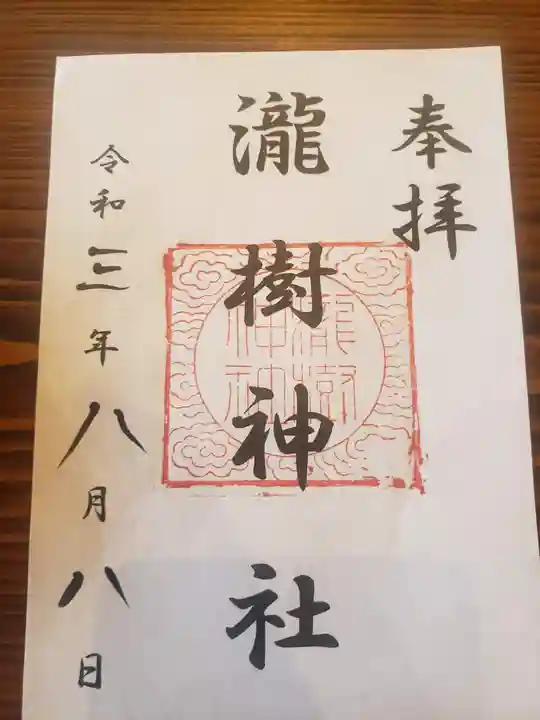 奉拝
瀧樹神社
瀧樹
神社
令和三年八月八日